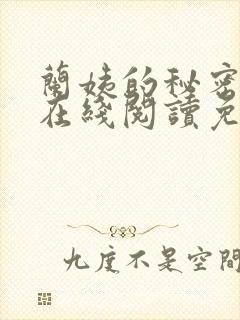 蘭姨的秘密
在綫閱讀免
九度不是空間